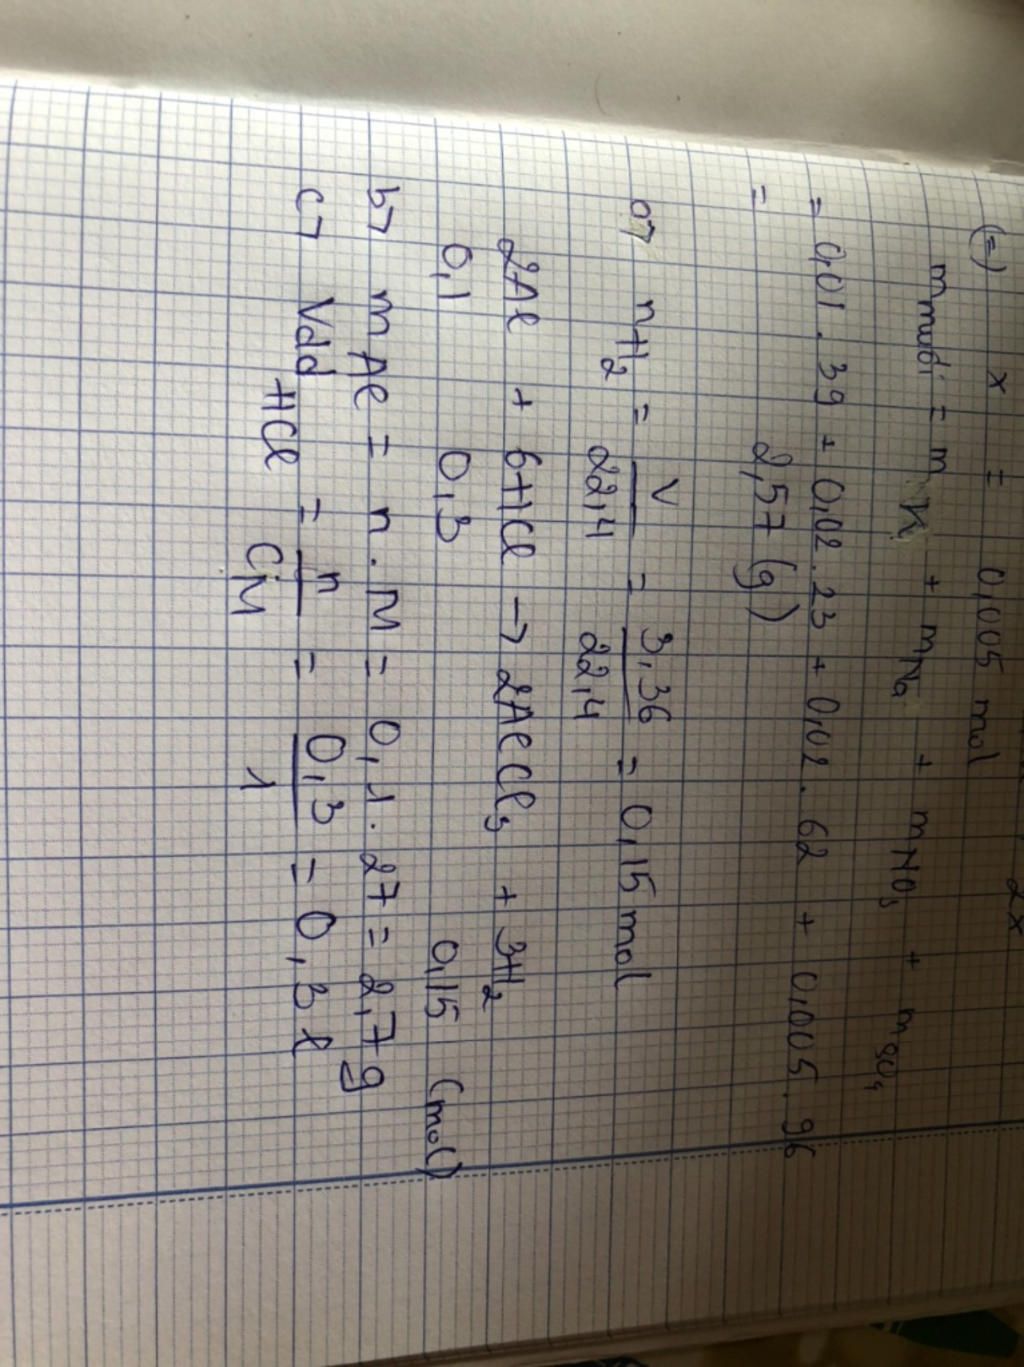 2x
(=) x = 0,005 mol
m muối = m K + m Na + m NO3 + m SO4
= 0,01 . 39 + 0,02 . 23 + 0,02 . 62 + 0,005 . 96
= 2,57 (g)
a> nH2 = V/22,4 = 3,36/22,4 = 0,15 mol
2Al + 6HCl → 2AlCl3 + 3H2
0,1 0,3 0,15 (mol)
b> m Al = n . M = 0,1 . 27 = 2,7 g
c> Vdd HCl = n/CM = 0,3/1 = 0,3 l